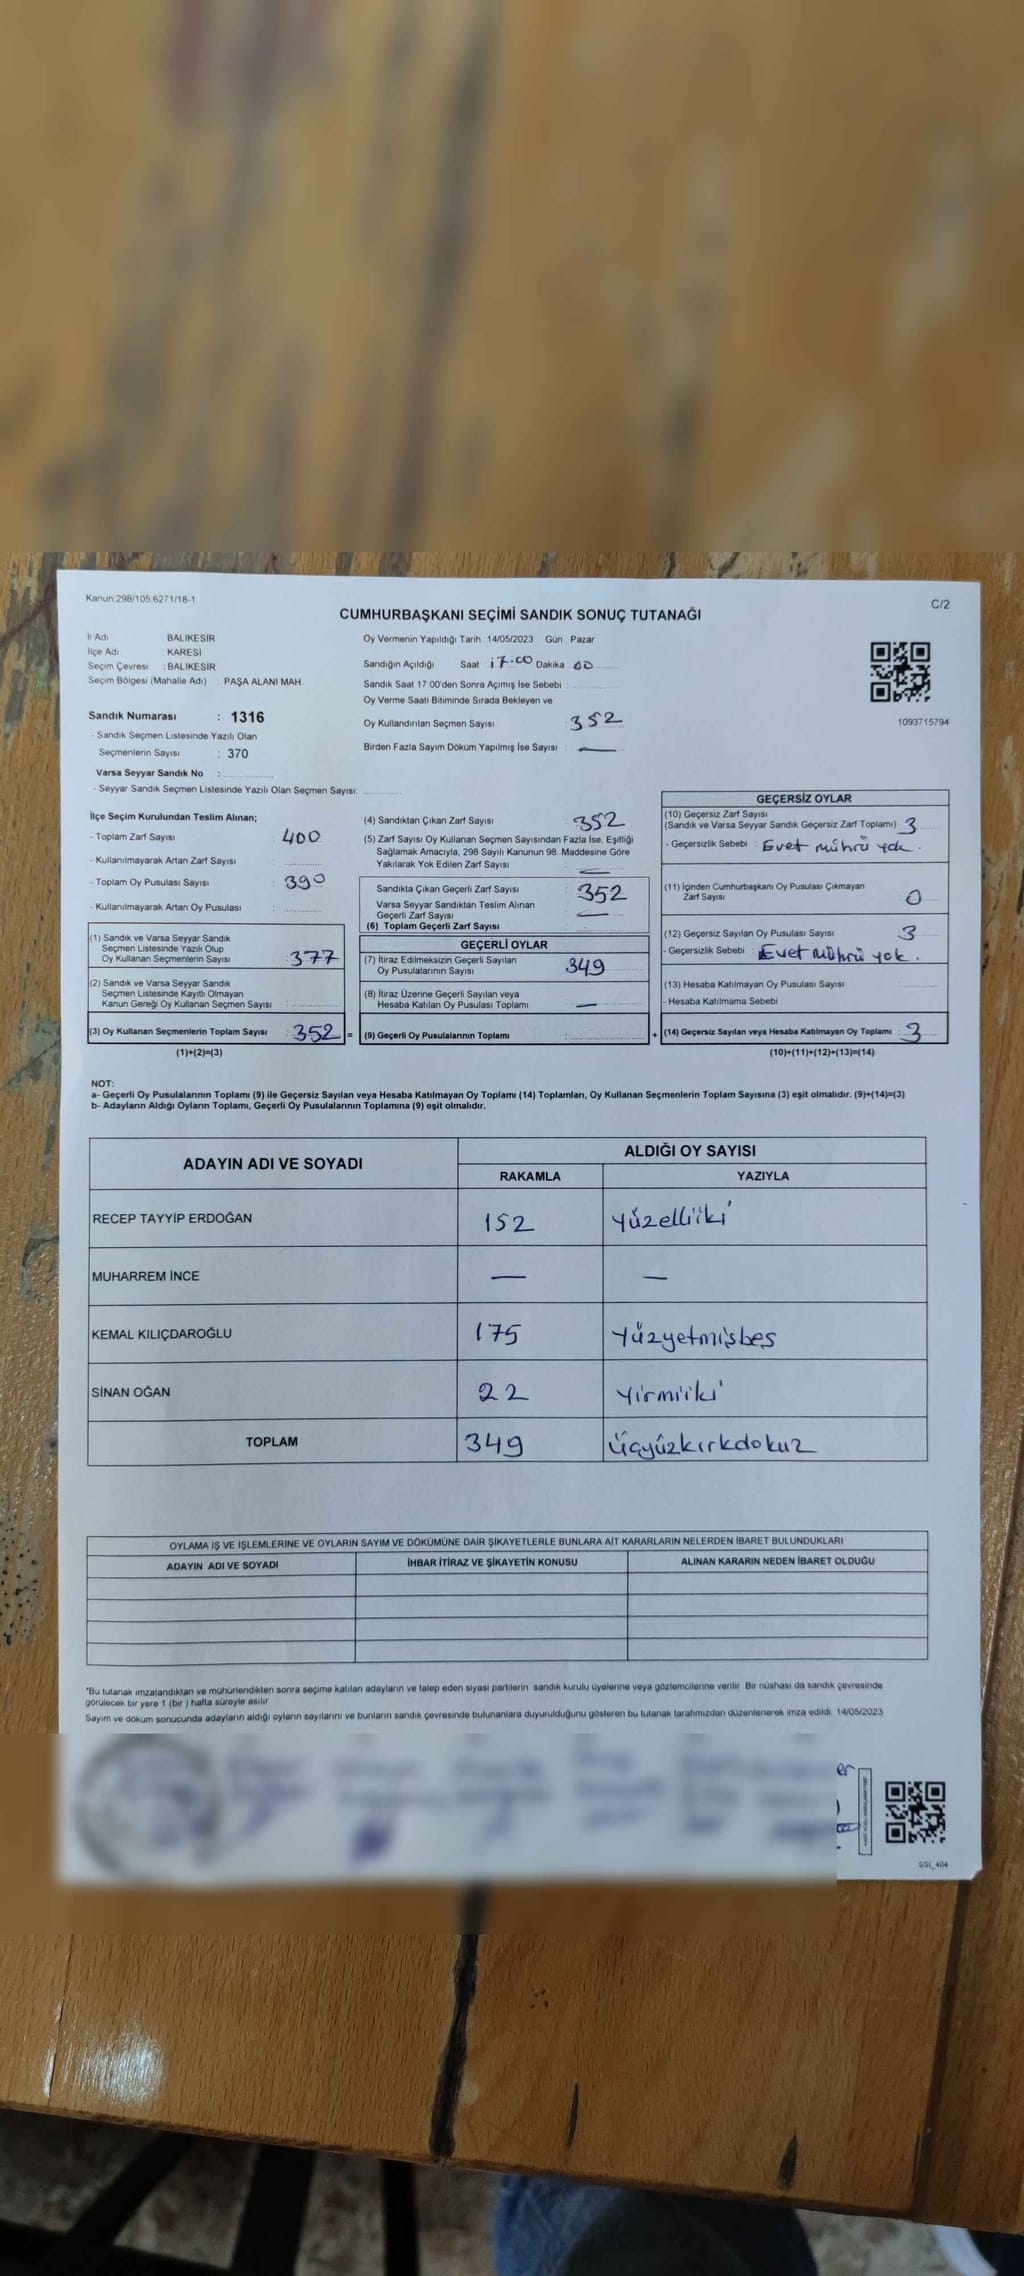 Kanun;298/105;6271/18-1
C/2
CUMHURBAŞKANI SEÇİMİ SANDIK SONUÇ TUTANAĞI
İl Adı : BALIKESİR
İlçe Adı : KARESİ
Seçim Çevresi : BALIKESİR
Seçim Bölgesi (Mahalle Adı) : PAŞA ALANI MAH.
Sandık Numarası : 1316
- Sandık Seçmen Listesinde Yazılı Olan
Seçmenlerin Sayısı : 370
Varsa Seyyar Sandık No :
- Seyyar Sandık Seçmen Listesinde Yazılı Olan Seçmen Sayısı:
Oy Vermenin Yapıldığı Tarih :14/05/2023 Gün : Pazar
Sandığın Açıldığı Saat : 17.00 Dakika : 00
Sandık Saat 17.00'den Sonra Açımış İse Sebebi :
Oy Verme Saati Bitiminde Sırada Bekleyen ve
Oy Kullandırılan Seçmen Sayısı : 352
Birden Fazla Sayım Döküm Yapılmış İse Sayısı : —
1093715794
İlçe Seçim Kurulundan Teslim Alınan;
- Toplam Zarf Sayısı : 400
- Kullanılmayarak Artan Zarf Sayısı :
- Toplam Oy Pusulası Sayısı : 390
- Kullanılmayarak Artan Oy Pusulası :
(1) Sandık ve Varsa Seyyar Sandık
Seçmen Listesinde Yazılı Olup
Oy Kullanan Seçmenlerin Sayısı : 377
(2) Sandık ve Varsa Seyyar Sandık
Seçmen Listesinde Kayıtlı Olmayan
Kanun Gereği Oy Kullanan Seçmen Sayısı :
(3) Oy Kullanan Seçmenlerin Toplam Sayısı : 352 =
(1)+(2)=(3)
(4) Sandıktan Çıkan Zarf Sayısı : 352
(5) Zarf Sayısı Oy Kullanan Seçmen Sayısından Fazla İse, Eşitliği
Sağlamak Amacıyla, 298 Sayılı Kanunun 98. Maddesine Göre
Yakılarak Yok Edilen Zarf Sayısı : —
Sandıkta Çıkan Geçerli Zarf Sayısı : 352
Varsa Seyyar Sandıktan Teslim Alınan
Geçerli Zarf Sayısı : —
(6) Toplam Geçerli Zarf Sayısı :
GEÇERLİ OYLAR
(7) İtiraz Edilmeksizin Geçerli Sayılan
Oy Pusulalarının Sayısı : 349
(8) İtiraz Üzerine Geçerli Sayılan veya
Hesaba Katılan Oy Pusulaları Toplamı : —
(9) Geçerli Oy Pusulalarının Toplamı : +
GEÇERSİZ OYLAR
(10) Geçersiz Zarf Sayısı
(Sandık ve Varsa Seyyar Sandık Geçersiz Zarf Toplamı) : 3
- Geçersizlik Sebebi : Evet mührü yok.
(11) İçinden Cumhurbaşkanı Oy Pusulası Çıkmayan
Zarf Sayısı : 0
(12) Geçersiz Sayılan Oy Pusulası Sayısı : 3
- Geçersizlik Sebebi : Evet mührü yok.
(13) Hesaba Katılmayan Oy Pusulası Sayısı :
- Hesaba Katılmama Sebebi :
(14) Geçersiz Sayılan veya Hesaba Katılmayan Oy Toplamı : 3
(10)+(11)+(12)+(13)=(14)
NOT:
a- Geçerli Oy Pusulalarının Toplamı (9) ile Geçersiz Sayılan veya Hesaba Katılmayan Oy Toplamı (14) Toplamları, Oy Kullanan Seçmenlerin Toplam Sayısına (3) eşit olmalıdır. (9)+(14)=(3)
b- Adayların Aldığı Oyların Toplamı, Geçerli Oy Pusulalarının Toplamına (9) eşit olmalıdır.
ADAYIN ADI VE SOYADI
ALDIĞI OY SAYISI
RAKAMLA YAZIYLA
RECEP TAYYİP ERDOĞAN 152 Yüzelliiki
MUHARREM İNCE — —
KEMAL KILIÇDAROĞLU 175 Yüzyetmişbeş
SİNAN OĞAN 22 Yirmiiki
TOPLAM 349 Üçyüzkırkdokuz
OYLAMA İŞ VE İŞLEMLERİNE VE OYLARIN SAYIM VE DÖKÜMÜNE DAİR ŞİKAYETLERLE BUNLARA AİT KARARLARIN NELERDEN İBARET BULUNDUKLARI
ADAYIN ADI VE SOYADI İHBAR İTİRAZ VE ŞİKAYETİN KONUSU ALINAN KARARIN NEDEN İBARET OLDUĞU
"Bu tutanak imzalandıktan ve mühürlendikten sonra seçime katılan adayların ve talep eden siyasi partilerin sandık kurulu üyelerine veya gözlemcilerine verilir. Bir nüshası da sandık çevresinde
görülecek bir yere 1 (bir ) hafta süreyle asılır.
Sayım ve döküm sonucunda adayların aldığı oyların sayılarını ve bunların sandık çevresinde bulunanlara duyurulduğunu gösteren bu tutanak tarafımızdan düzenlenerek imza edildi. 14/05/2023
SSI_404